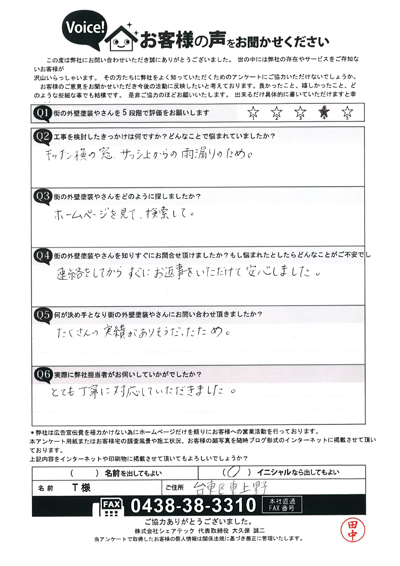 Voice!
お客様の声をお聞かせください
この度は弊社にお問い合わせいただき誠にありがとうございました。世の中には弊社の存在やサービスをご存知ないお客様が
沢山いらっしゃいます。その方たちに弊社をよく知っていただくためのアンケートにご協力いただけないでしょうか。
お客様のご意見をお聞かせいただき今後の活動に反映したいと考えております。良かったこと、嬉しかったこと、ど
のような些細な事でも結構です。是非ご協力のほどお願いいたします。出来るだけ具体的に書いていただけますと幸
Q1 街の外壁塗装やさんを5段階で評価をお願いします ☆ ☆ ☆ ★ ☆
Q2 工事を検討したきっかけは何ですか?どんなことで悩まれていましたか?
キッチン横の窓、サッシ上からの雨漏りのため。
Q3 街の外壁塗装やさんをどのように探しましたか?
ホームページを見て、検索して。
Q4 街の外壁塗装やさんを知りすぐにお問合せ頂けましたか?もし悩まれたとしたらどんなことがご不安でし
連絡をしてからすぐにお返事をいただけて安心しました。
Q5 何が決め手となり街の外壁塗装やさんにお問い合わせ頂きましたか?
たくさんの実績がありそうだったため。
Q6 実際に弊社担当者がお伺いしていかがでしたか?
とても丁寧に対応していただきました。
*弊社は広告宣伝費を極力かけない為にホームページだけを頼りにお客様への営業活動を行っております。
本アンケート用紙またはお客様宅の調査風景や施工状況、お客様の顔写真を随時ブログ形式のインターネットに掲載させて頂いております。
上記内容をインターネットや印刷物に掲載させて頂いてもよろしいでしょうか?
( ) 名前を出してもよい (○) イニシャルなら出してもよい
名前 T様 ご住所 台東区東上野
FAX 0438-38-3310 本社直通FAX番号
ご協力ありがとうございました。
株式会社シェアテック 代表取締役 大久保 誠二
当アンケートで取得したお客様の個人情報は関係法規に基づき厳正に管理いたします。
田中